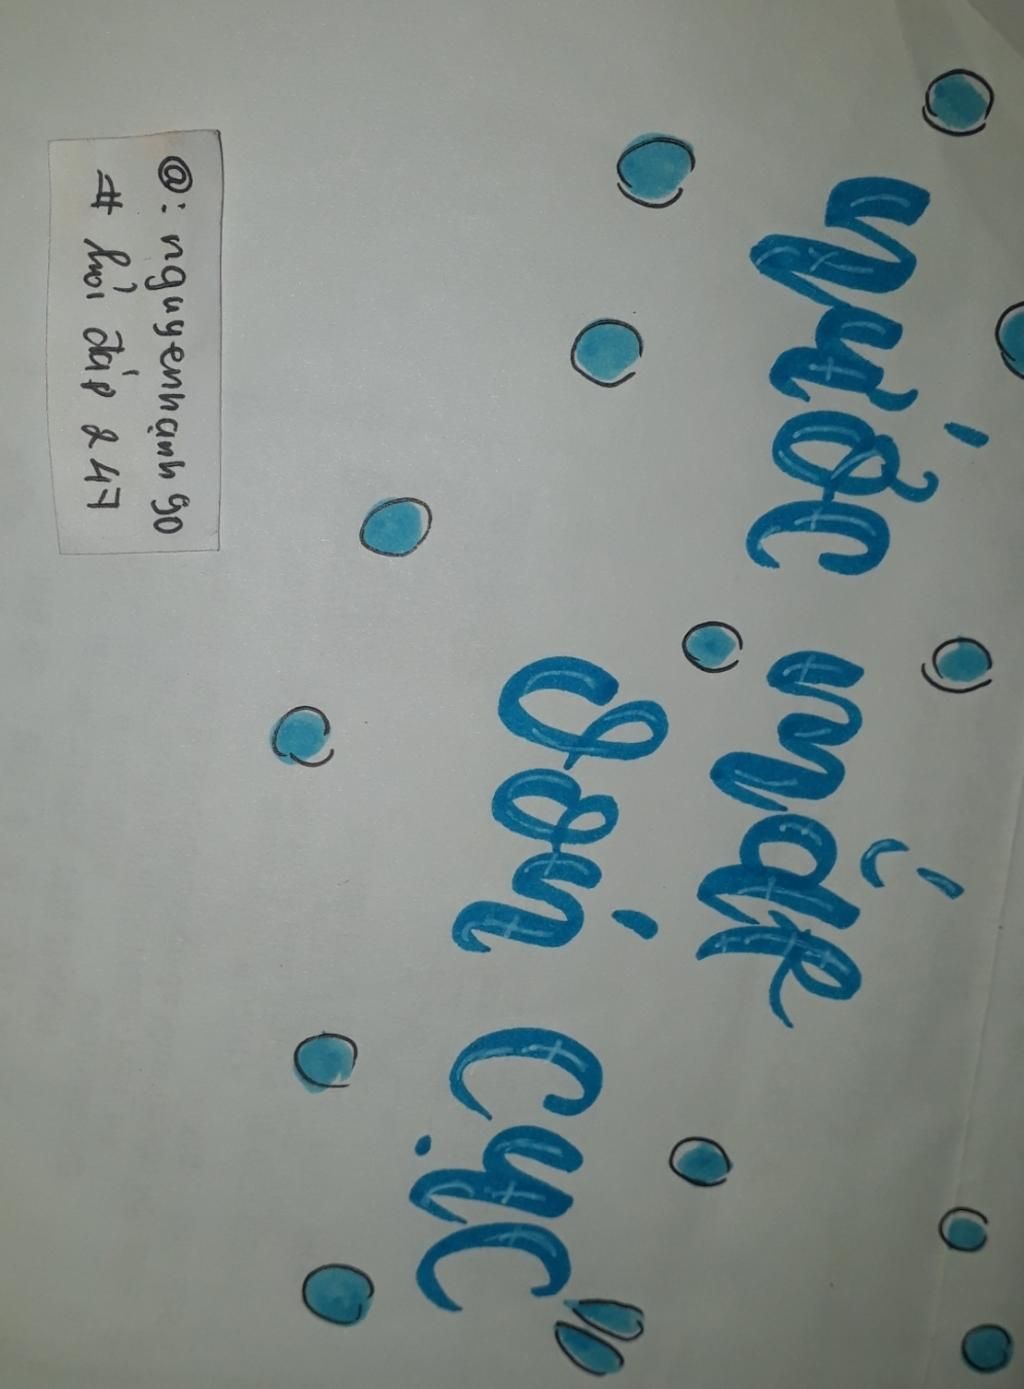 nước mắt
vón cục
@: nguyenhạnh 90
# hỏi đáp 247